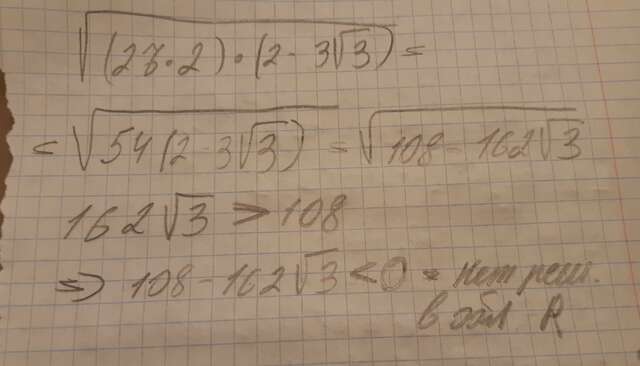 √((27·2)·(2-3√3)) =
= √(54(2-3√3)) = √(108-162√3)
162√3 > 108
=> 108-162√3 < 0 = нет реш.
в обл R